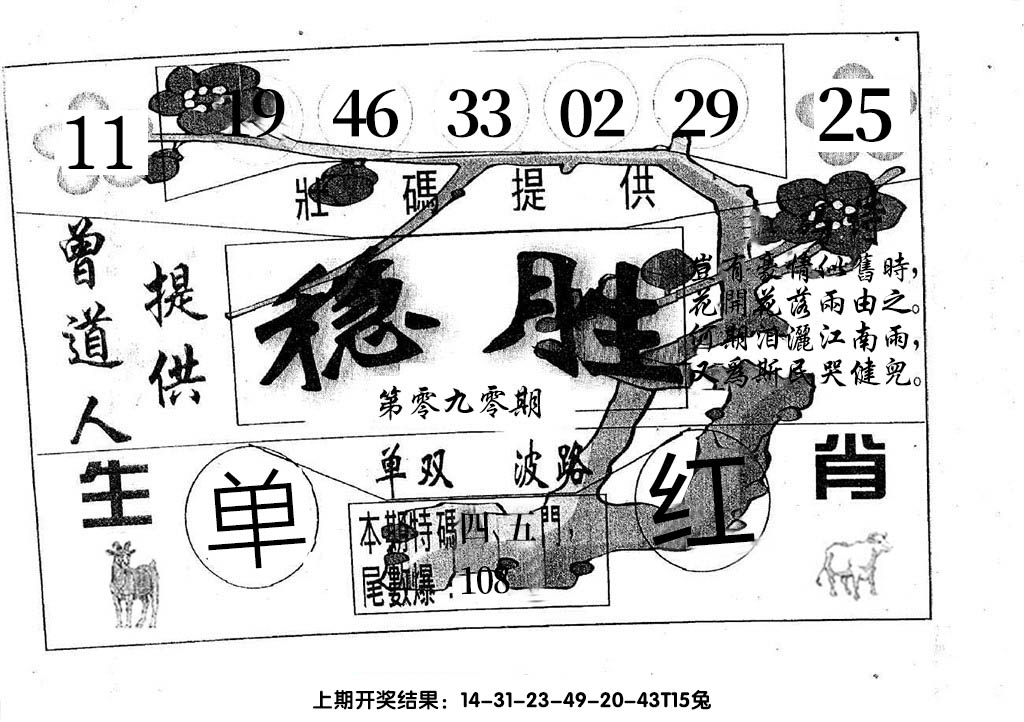 11 19 46 33 02 29 25
壯碼提供
曾道人
提供
穩胜
第零九零期
豈有豪情似舊時，
花開花落兩由之。
何期泪灑江南雨，
又為斯民哭健兒。
生肖
单双 波路
单 红
本期特碼四、五門，
尾數爆：108
上期开奖结果：14-31-23-49-20-43T15兔